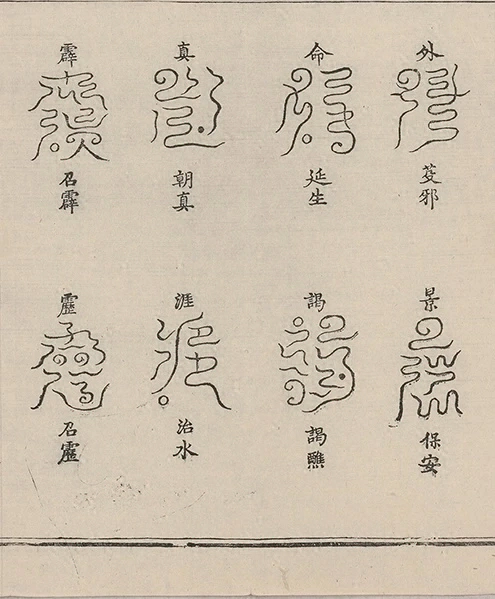 外
芟邪
命
延生
真
朝真
霹
召霹
景
保安
謁
謁醮
涯
治水
召